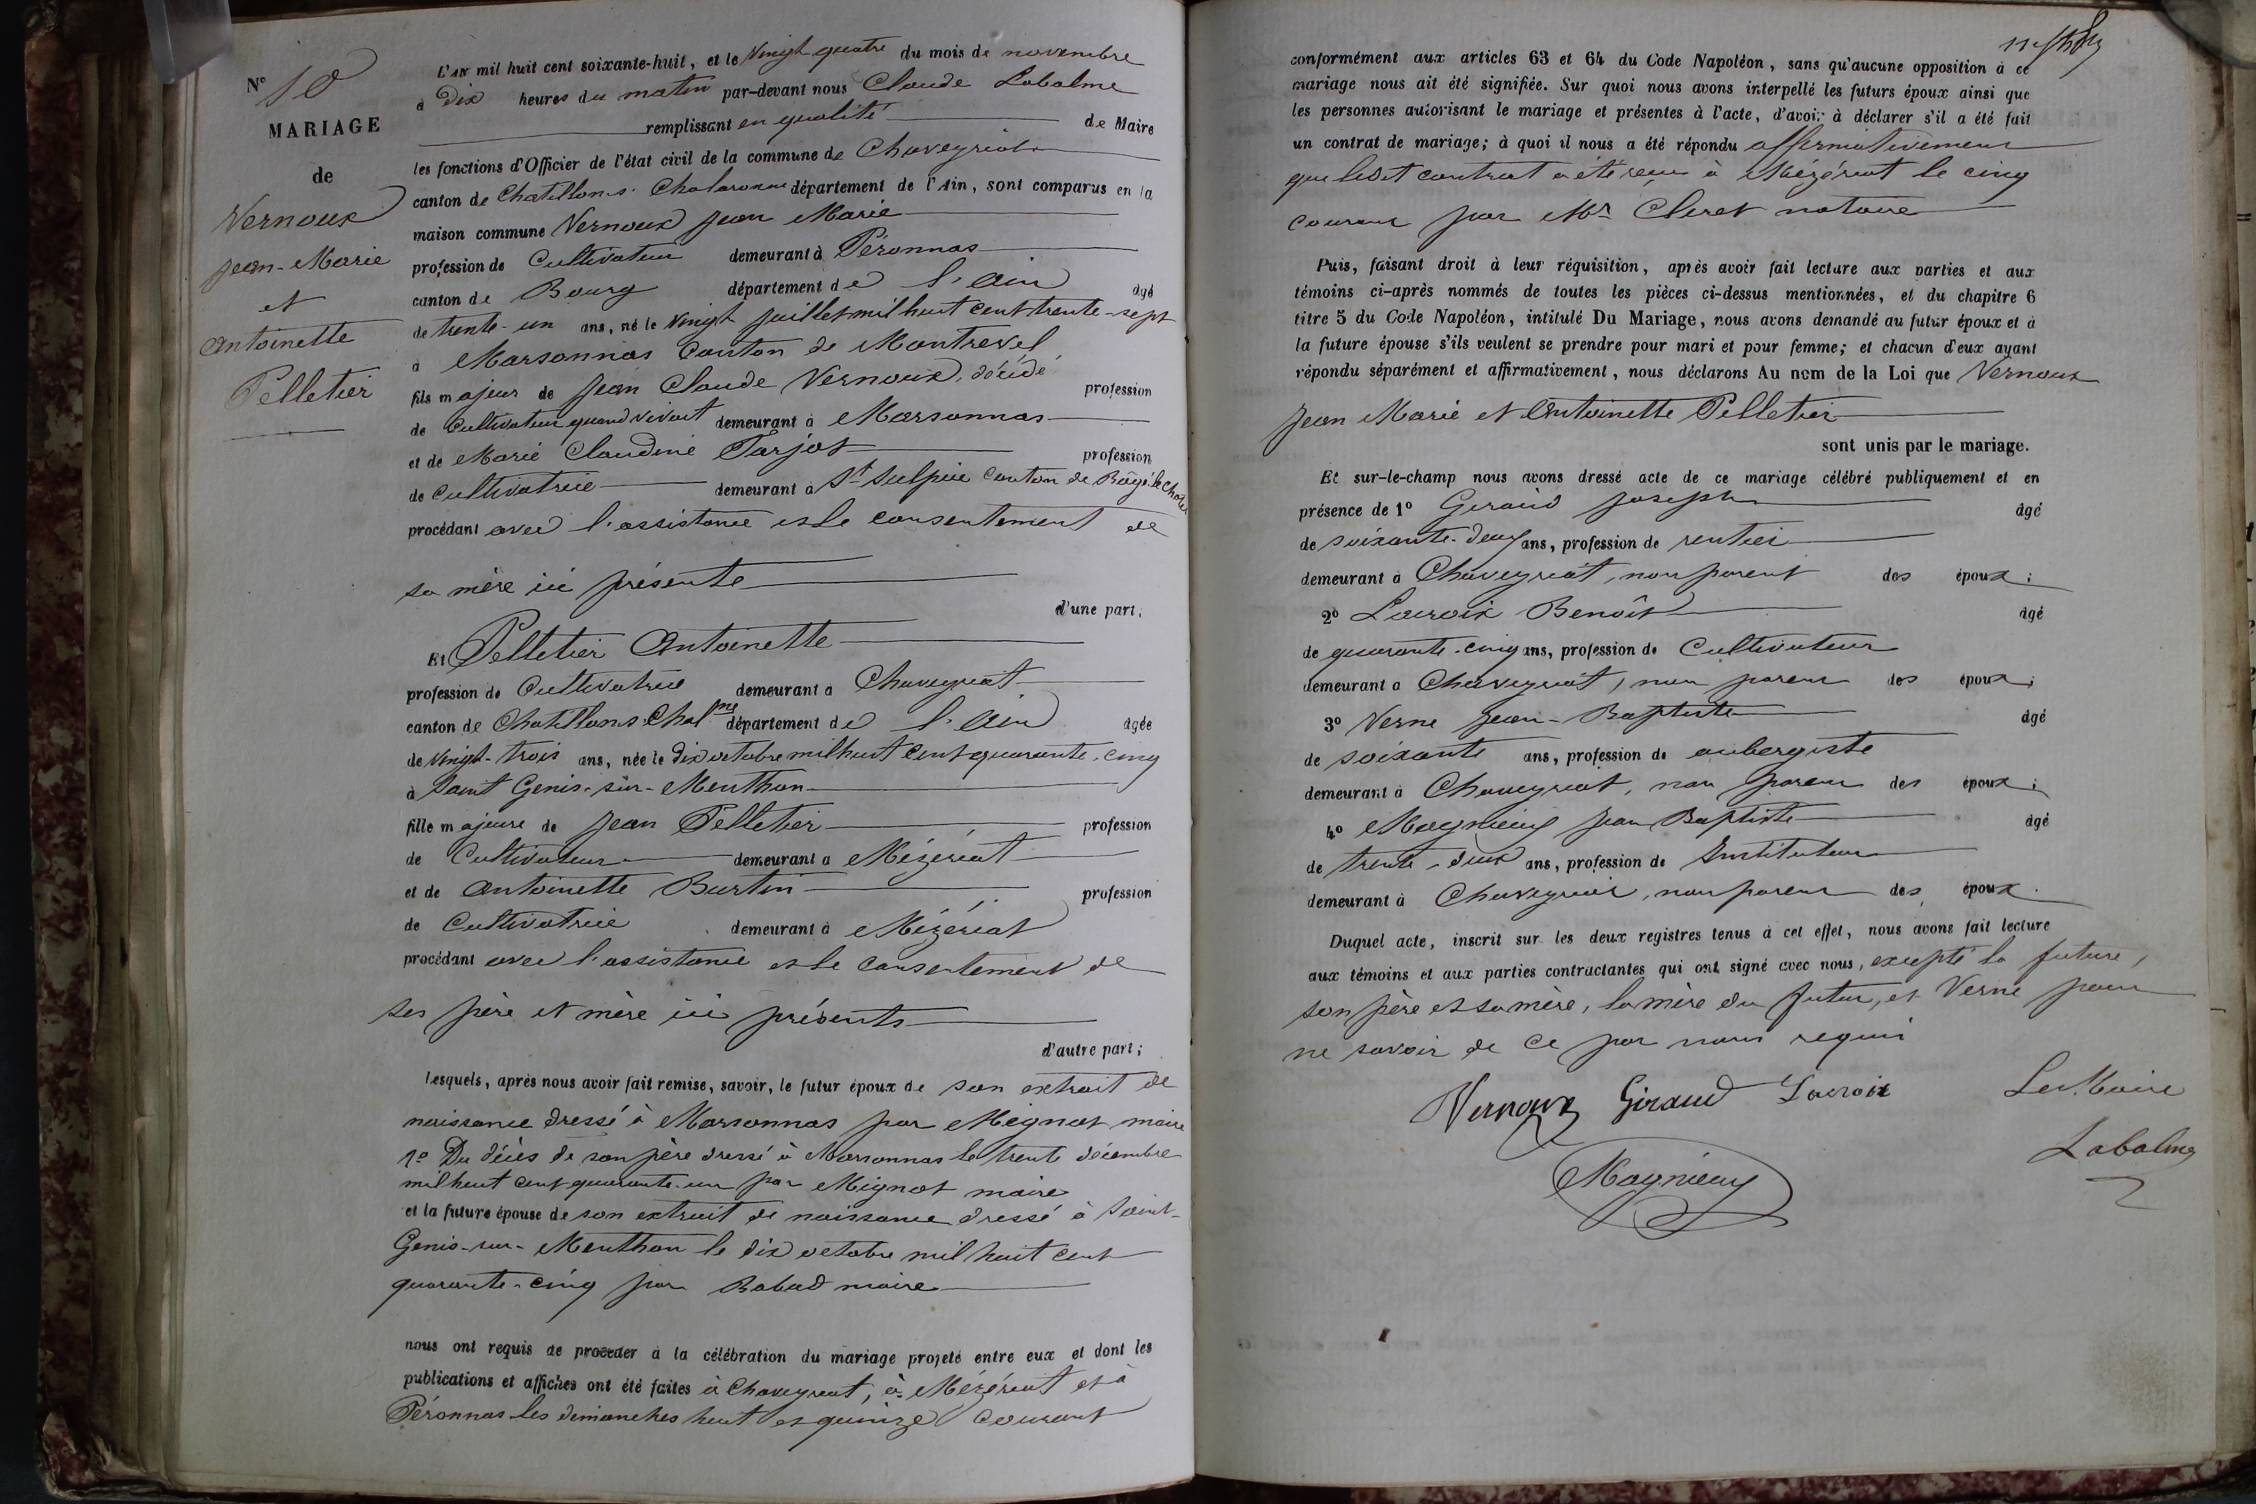 N° 10
MARIAGE
de
Vernoux
Jean-Marie
et
Antoinette
Pelletier
L'AN mil huit cent soixante-huit, et le vingt quatre du mois de novembre
à Dix heures du matin par-devant nous Claude Labalme
remplissant en qualité de Maire
les fonctions d'Officier de l'état civil de la commune de Chaveyriat
canton de Chatillon s. Chalaronne département de l'Ain, sont comparus en la
maison commune Vernoux Jean Marie
profession de Cultivateur demeurant à Péronnas
canton de Bourg département de l'Ain agé
de trente-un ans, né le vingt juillet mil huit cent trente-sept
à Marsonnas Canton de Montrevel
fils majeur de Jean Claude Vernoux, décédé profession
de Cultivateur quand vivait demeurant à Marsonnas
et de Marie Claudine Farjot profession
de Cultivatrice demeurant à St Sulpice Canton de Bâgé-le-Chatel
procédant avec l'assistance et le consentement de
sa mère ici présente
d'une part,
Et Pelletier Antoinette
profession de Cultivatrice demeurant a Chaveyriat
canton de Chatillon s. Chalme département de l'Ain agée
de vingt-trois ans, née le dix octobre mil huit cent quarante-cinq
à Saint Genis-sur-Menthon
fille majeure de Jean Pelletier profession
de Cultivateur demeurant a Mézériat
et de Antoinette Burtin profession
de Cultivatrice demeurant à Mézériat
procédant avec l'assistance et le consentement de
ses père et mère ici présents
d'autre part;
Lesquels, après nous avoir fait remise, savoir, le futur époux de son extrait de
naissance dressé à Marsonnas par Mignot maire
1° Du décès de son père dressé à Marsonnas le trente décembre
mil huit cent quarante-un par Mignot maire
et la future épouse de son extrait de naissance dressé à Saint-
Genis-sur-Menthon le dix octobre mil huit cent
quarante-cinq par Rabud maire
nous ont requis de procéder à la célébration du mariage projeté entre eux et dont les
publications et affiches ont été faites à Chaveyriat, à Mézériat et à
Péronnas les dimanches huit et quinze courant
conformément aux articles 63 et 64 du Code Napoléon, sans qu'aucune opposition à ce
mariage nous ait été signifiée. Sur quoi nous avons interpellé les futurs époux ainsi que
les personnes autorisant le mariage et présentes à l'acte, d'avoir à déclarer s'il a été fait
un contrat de mariage; à quoi il nous a été répondu affirmativement
que ledit contrat a été reçu à Mézériat le cinq
courant par Mr Cleret notaire
Puis, faisant droit à leur réquisition, après avoir fait lecture aux parties et aux
témoins ci-après nommés de toutes les pièces ci-dessus mentionnées, et du chapitre 6
titre 5 du Code Napoléon, intitulé Du Mariage, nous avons demandé au futur époux et à
la future épouse s'ils veulent se prendre pour mari et pour femme; et chacun d'eux ayant
répondu séparément et affirmativement, nous déclarons Au nom de la Loi que Vernoux
Jean Marie et Antoinette Pelletier
sont unis par le mariage.
Et sur-le-champ nous avons dressé acte de ce mariage célébré publiquement et en
présence de 1° Geraud Joseph agé
de soixante-deux ans, profession de rentier
demeurant à Chaveyriat, non parent des époux;
2° Lacroix Benoît agé
de quarante-cinq ans, profession de Cultivateur
demeurant a Chaveyriat, non parent des époux;
3° Verne Jean-Baptiste agé
de soixante ans, profession de aubergiste
demeurant à Chaveyriat, non parent des époux;
4° Magnieny Jean Baptiste agé
de trente-deux ans, profession de Instituteur
demeurant à Chaveyriat, non parent des époux.
Duquel acte, inscrit sur les deux registres tenus à cet effet, nous avons fait lecture
aux témoins et aux parties contractantes qui ont signé avec nous, excepté la future,
son père et sa mère, la mère du futur, et Verne pour
ne savoir de ce par nous requis
Vernoux Giraud Lacroix Le Maire
Labalme
Magnieny